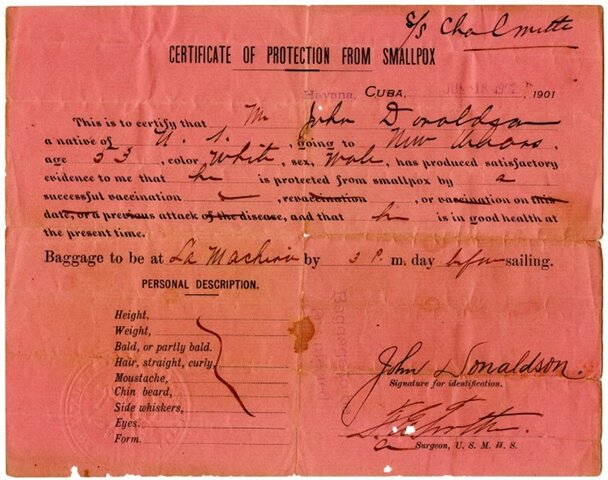 S/S Chalmette
CERTIFICATE OF PROTECTION FROM SMALLPOX
Havana, CUBA, 1901
This is to certify that Mr John Donaldson
a native of U. S. , going to New Orleans,
age 53, color White, sex, Male, has produced satisfactory
evidence to me that he is protected from smallpox by a
successful vaccination , revaccination , or vaccination on this
date, or a previous attack of the disease, and that he is in good health at
the present time.
Baggage to be at La Machina by 3 P. m. day before sailing.
PERSONAL DESCRIPTION.
Height,
Weight,
Bald, or partly bald.
Hair, straight, curly,
Moustache,
Chin beard,
Side whiskers,
Eyes.
Form.
John Donaldson.
Signature for identification.
Surgeon, U. S. M. H. S.